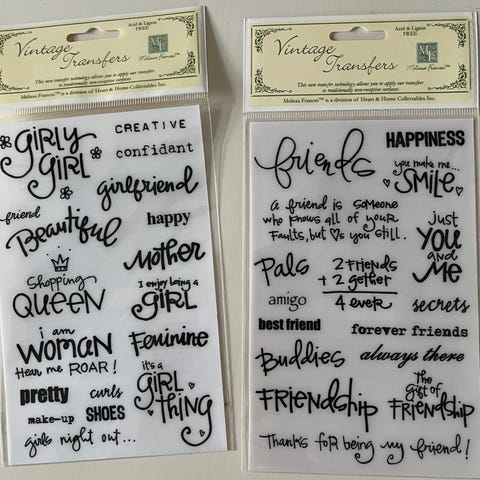 Acid & Lignin
FREE
Vintage
Transfers
Melissa Frances™
This new transfer technology allows you to apply our transfers
to traditionally non-receptive surfaces.
Melissa Frances™ is a division of Heart & Home Collectables Inc.
GiRLY
GiRL
CREATIVE
confidant
girlfriend
friend
Beautiful
happy
Mother
Shopping
QUEEN
I enjoy being a
GiRL
i am
WOMAN
Hear me ROAR!
Feminine
pretty
curls
make-up
SHOES
it's a
GiRL
THiNG
girls night out...
Acid & Lignin
FREE
Vintage
Transfers
Melissa Frances™
This new transfer technology allows you to apply our transfers
to traditionally non-receptive surfaces.
Melissa Frances™ is a division of Heart & Home Collectables Inc.
friends
HAPPINESS
you make me...
SMiLE
a friend is someone
who knows all of your
Faults, but ♡s you still.
Just
YOU
and
Me
Pals
2 FRiends
+ 2 gether
4 ever
amigo
secrets
best friend
forever friends
Buddies
always there
FRiENDship
The
gift of
FRiENDship
Thanks foR being my friend!